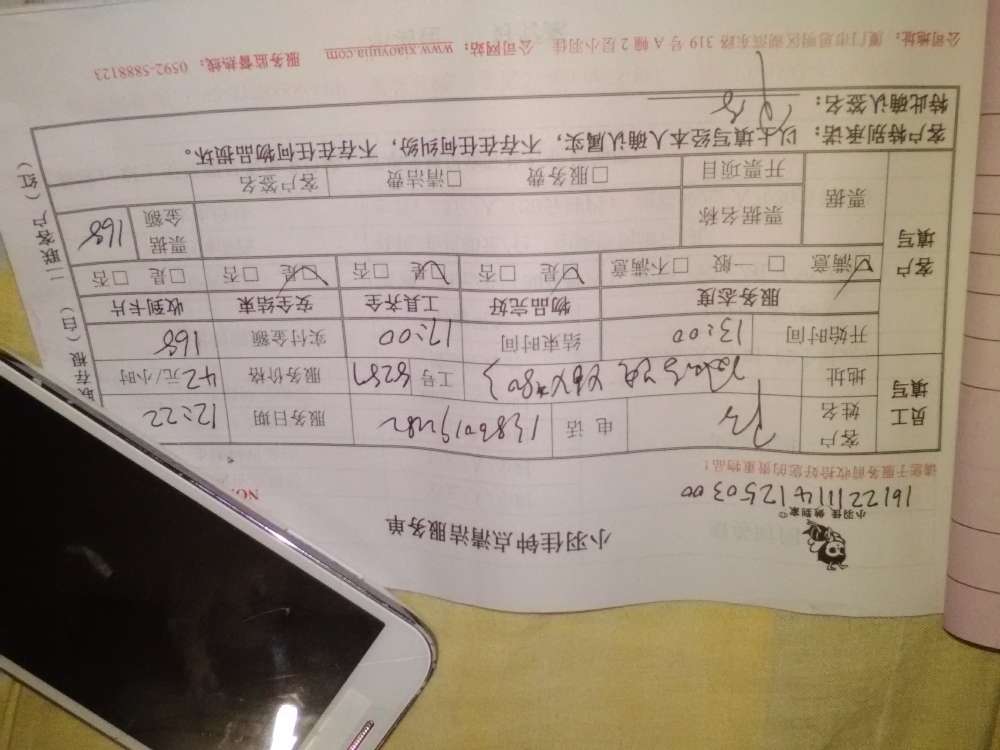 小羽佳钟点清洁服务单
小羽佳 做到家
161221114125 0300
NO.
请您于服务前收拾好您的贵重物品！
员工填写
客户姓名
电话
服务日期 12:22
地址
工号
服务价格 42元/小时
开始时间 13:00 结束时间 17:00 实付金额 168
客户填写
服务态度 物品完好 工具齐全 安全结束 收到卡片
☑满意 □一般 □不满意 ☑是 □否 ☑是 □否 ☑是 □否 □是 □否
票据 票据名称 票据金额 168
开票项目 □服务费 □清洁费 客户签名
客户特别承诺：以上填写经本人确认属实，不存在任何纠纷，不存在任何物品损坏。
特此确认签名：
公司地址：厦门市思明区湖滨东路 319 号 A 幢 2 层小羽佳 公司网站：www.xiaoyujia.com 服务监督热线：0592-5888123
存根（白） 二联客户（红）